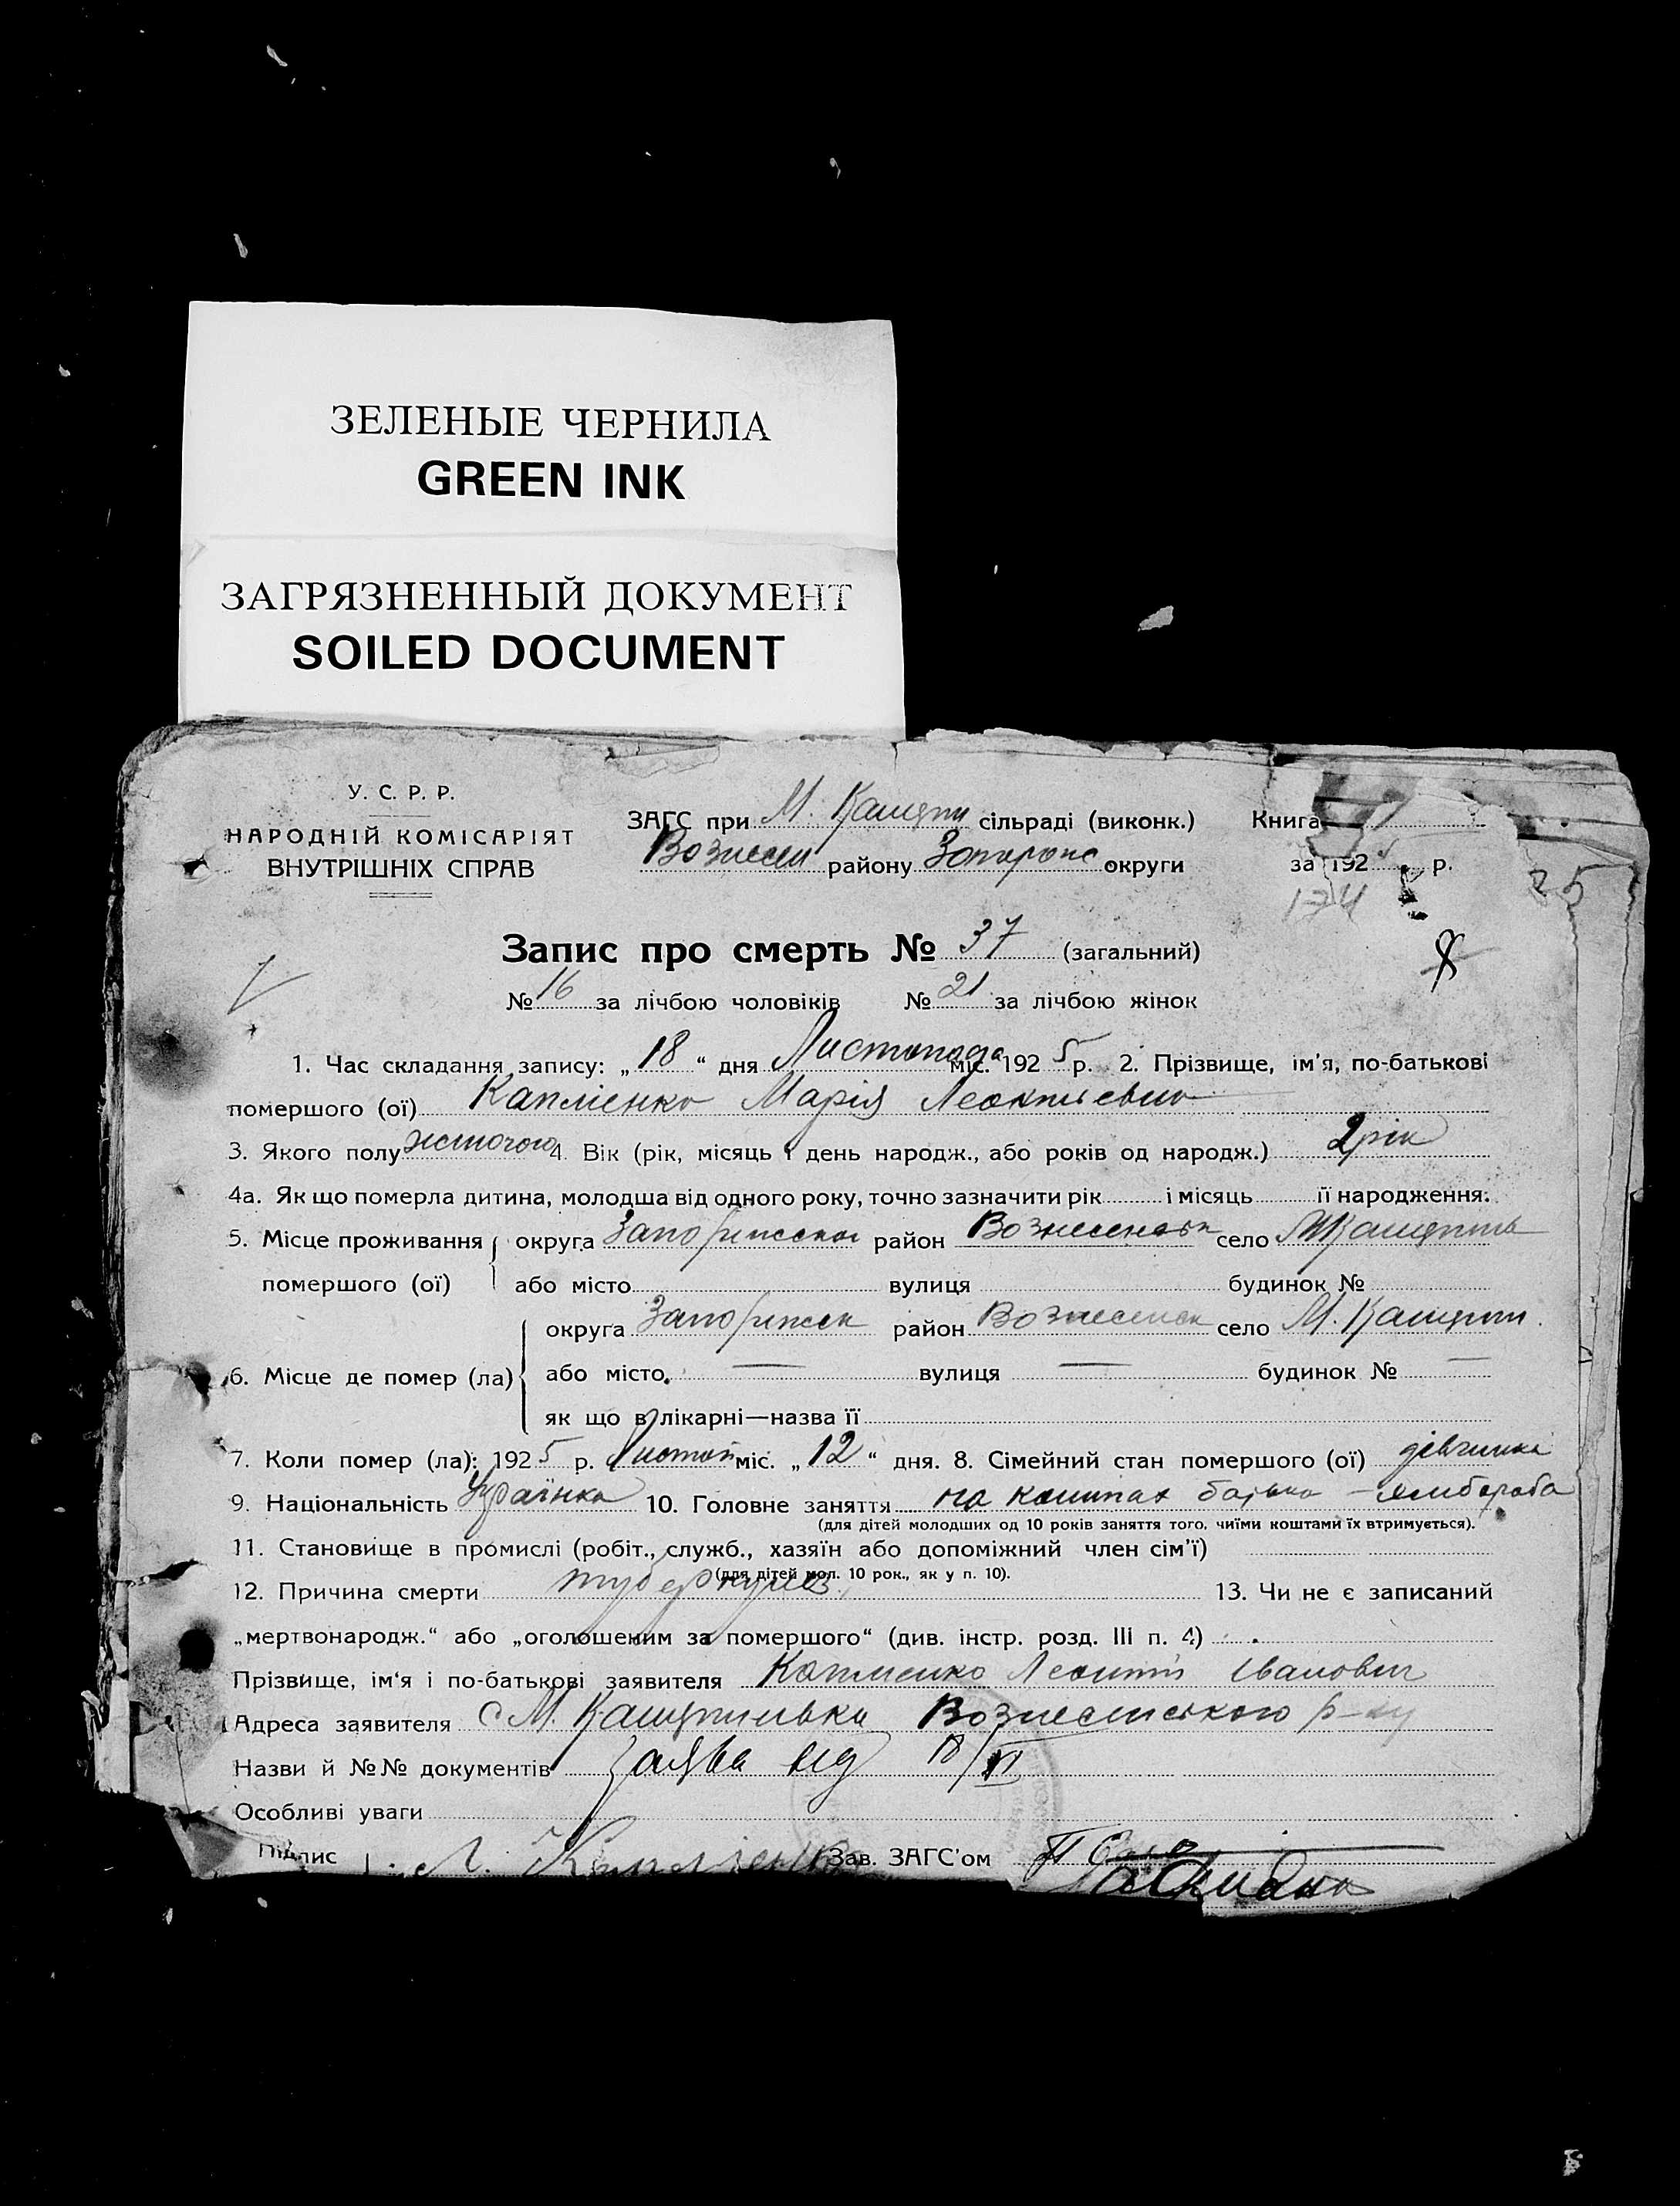 ЗЕЛЕНЫЕ ЧЕРНИЛА
GREEN INK
ЗАГРЯЗНЕННЫЙ ДОКУМЕНТ
SOILED DOCUMENT
У. С. Р. Р.
НАРОДНІЙ КОМІСАРІЯТ
ВНУТРІШНІХ СПРАВ
ЗАГС при М. сільраді (виконк.)
району округи
Книга
за 192 р.
174
25
Запис про смерть № 37 (загальний)
№ 16 за лічбою чоловіків № 21 за лічбою жінок
1. Час складання запису: „ 18 “ дня Листопада міс. 192 5 р. 2. Прізвище, ім'я, по-батькові
помершого (ої) Капліенко Марія
3. Якого полу жіночого 4. Вік (рік, місяць і день народж., або років од народж.) 2 рік
4а. Як що померла дитина, молодша від одного року, точно зазначити рік і місяць її народження.
5. Місце проживання помершого (ої) округа район село
або місто вулиця будинок №
6. Місце де помер (ла) округа район село М.
або місто — вулиця — будинок № —
як що в лікарні—назва її
7. Коли помер (ла): 192 5 р. Листоп міс. „ 12 “ дня. 8. Сімейний стан помершого (ої) дівчинка
9. Національність Українка 10. Головне заняття на коштах батька —
(для дітей молодших од 10 років заняття того, чиїми коштами їх втримується).
11. Становище в промислі (робіт., служб., хазяїн або допоміжний член сім'ї)
(для дітей мол. 10 рок., як у п. 10).
12. Причина смерти туберкульоз 13. Чи не є записаний
„мертвонародж.“ або „оголошеним за помершого“ (див. інстр. розд. III п. 4)
Прізвище, ім'я і по-батькові заявителя Капліенко Леонтій Іванович
Адреса заявителя С М. Вознесенського р-ну
Назви й №№ документів Заява від 18/XI
Особливі уваги
Підпис Л. Капліенко Зав. ЗАГС'ом